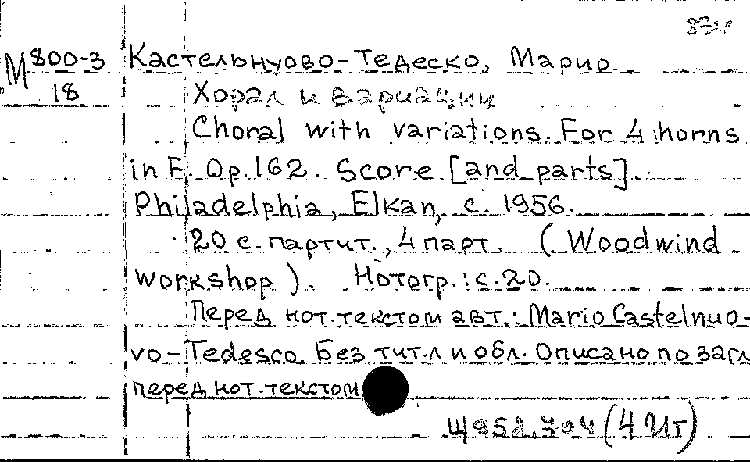 М 800-3 Кастельнуово-Тедеско, Марио
18 Хорал и вариации
Choral with variations. For 4 horns
in F. Op.162. Score [and parts].
Philadelphia, Elkan, c. 1956.
20 с. партит., 4 парт. (Woodwind
workshop). Нотогр.: с.20.
Перед нот.текстом авт.: Mario Castelnuo-
vo-Tedesco. Без тит.л и обл. Описано по загл
перед нот.текстом
(4 Иг)